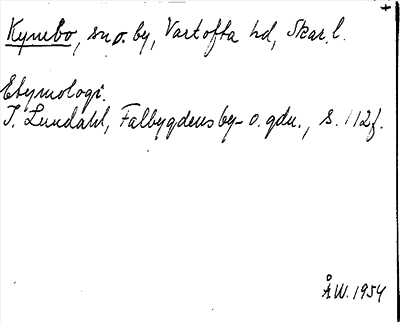 Kymbo, sn o. by, Vartofta hd, Skar. l.
Etymologi.
I. Lundahl, Falbygdens by- o. gdn., s. 112f.
ÅW. 1954